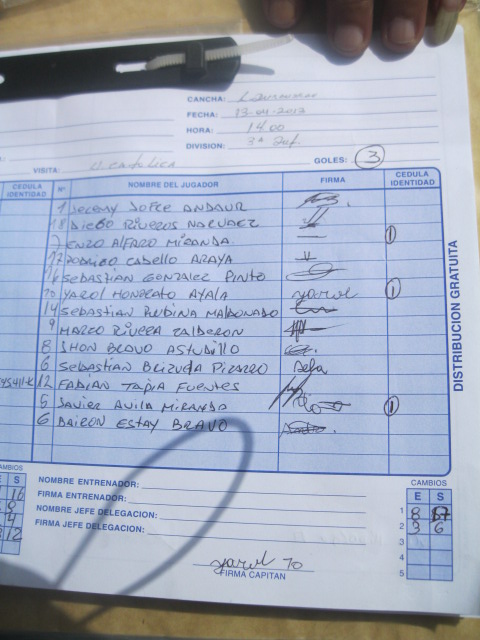 CANCHA:
FECHA: 13-04-2013
HORA: 14.00
DIVISION: 3ª Inf.
VISITA: U. Catolica GOLES: 3
CEDULA IDENTIDAD Nº NOMBRE DEL JUGADOR FIRMA CEDULA IDENTIDAD
1 Jeremy Jofre Andaur
18 Diego Riveros Narvaez
7 Enzo Alfaro Miranda. 1
17 Rodrigo Cabello Araya
16 Sebastian Gonzalez Pinto
10 Yarol Honorato Ayala yarol 1
14 Sebastian Rubina Maldonado
9 Marco Rivera Calderon
8 Jhon Bravo Astudillo
6 Sebastian Brizuela Pizarro Seba
12 Fabián Tapia Fuentes
5 Javier Avila Mirando 1
6 Bairon Estay Bravo
DISTRIBUCION GRATUITA
CAMBIOS
S
16
8
4
12
NOMBRE ENTRENADOR:
FIRMA ENTRENADOR:
NOMBRE JEFE DELEGACION:
FIRMA JEFE DELEGACION:
yarol 10
FIRMA CAPITAN
CAMBIOS
E S
1 8
2 3 6
3
4
5